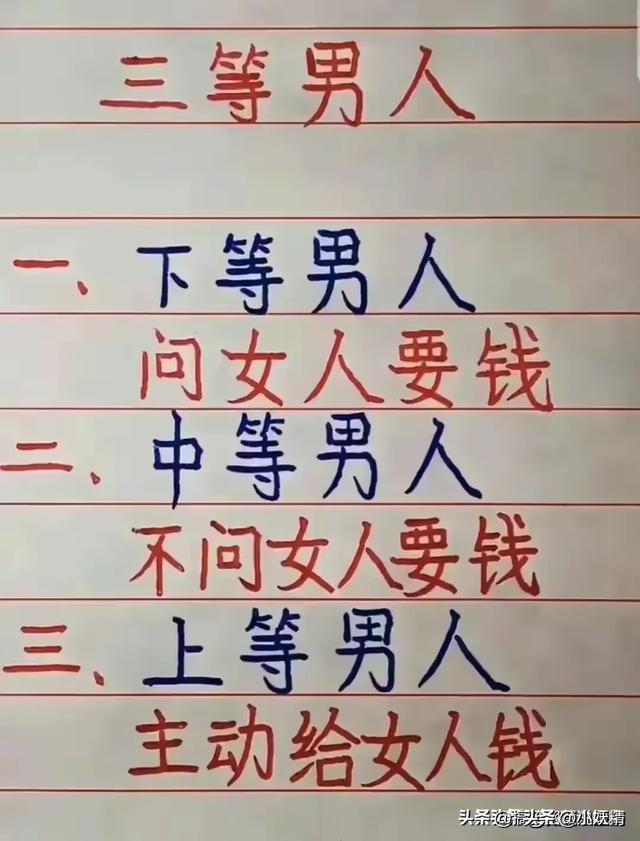 三等男人
一、下等男人
问女人要钱
二、中等男人
不问女人要钱
三、上等男人
主动给女人钱